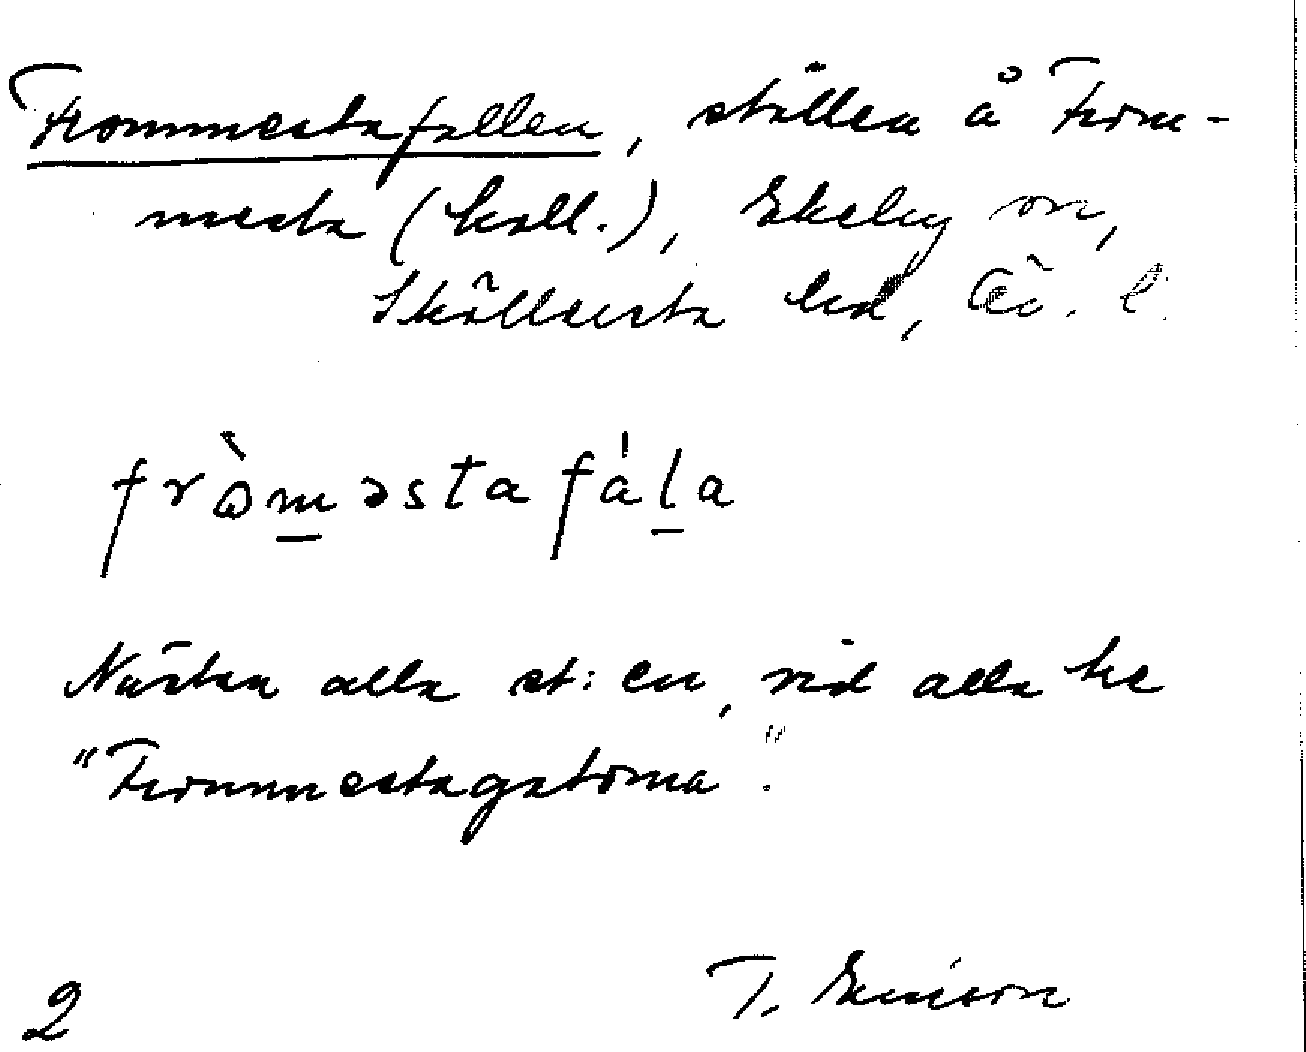 Frommestafallen, ställen å From-
mesta (koll.), Ekeby sn,
Sköllersta hd, Ö. l.
frò̀məstafála
Nästan alla st: en, vid alla he
"Frommestagatorna".
T. Ericson
2